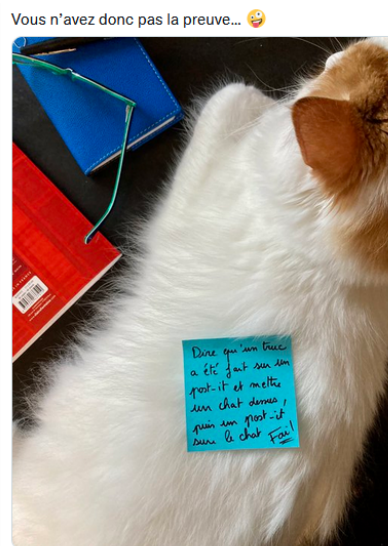 Vous n’avez donc pas la preuve... 🤪
Dire qu'un truc
a été fait sur un
post-it et mettre
un chat dessus,
puis un post-it
sur le chat Fait!